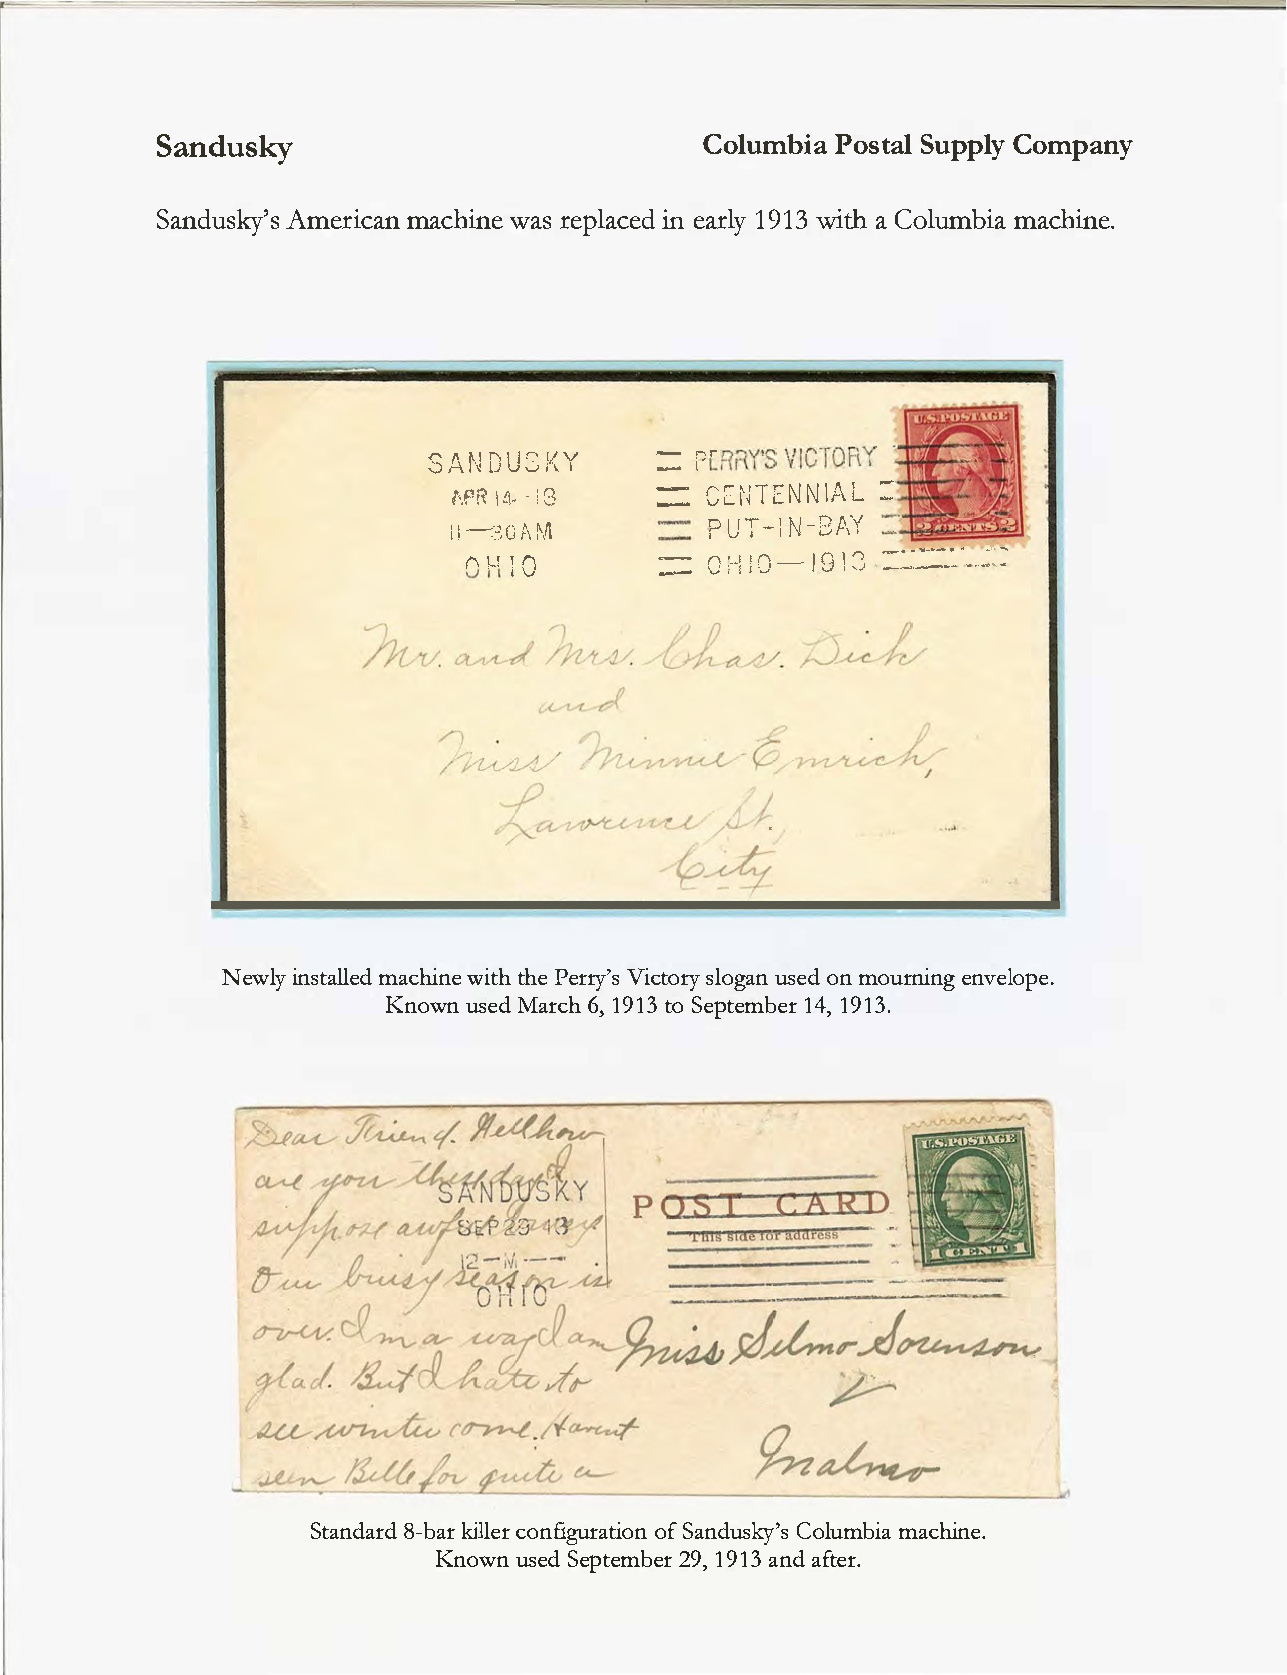 Sandusky Columbia Postal Supply Company
Sandusky's American machine was replaced in early 1913 with a Columbia machine.
SANDUSKY
APR 14 -13
11—30AM
OHIO
PERRY'S VICTORY
CENTENNIAL
PUT-IN-BAY
OHIO—1913
U.S.POSTAGE
2 CENTS 2
Mr. and Mrs. Chas. Dick
and
Miss Minnie Emrich,
Lawrence St.,
City
Newly installed machine with the Perry's Victory slogan used on mourning envelope.
Known used March 6, 1913 to September 14, 1913.
Dear Friend. Hellhow
are you these day I
suppose awful buisy
Our buisy season is
over. I'm a way I am
glad. But I hate to
see winter come. Havent
seen Belle for quite a
SANDUSKY
SEP 29 13
12—M—
OHIO
POST CARD
This side for address
U.S.POSTAGE
1 CENT 1
Miss Selmo Sorenson
Malmo
Standard 8-bar killer configuration of Sandusky's Columbia machine.
Known used September 29, 1913 and after.